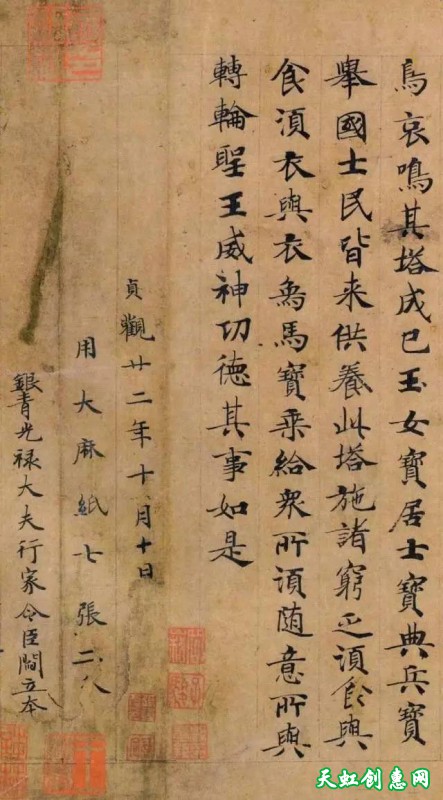 鳥哀鳴其塔成已玉女寶居士寶典兵寶
舉國士民皆来供養此塔施諸窮乏須食與
食須衣與衣象馬寶乗給衆所須随意所與
轉輪聖王威神功德其事如是
貞觀廿二年十月十日
用大麻紙七張二分
銀青光禄大夫行家令臣閻立本
天虹创意网